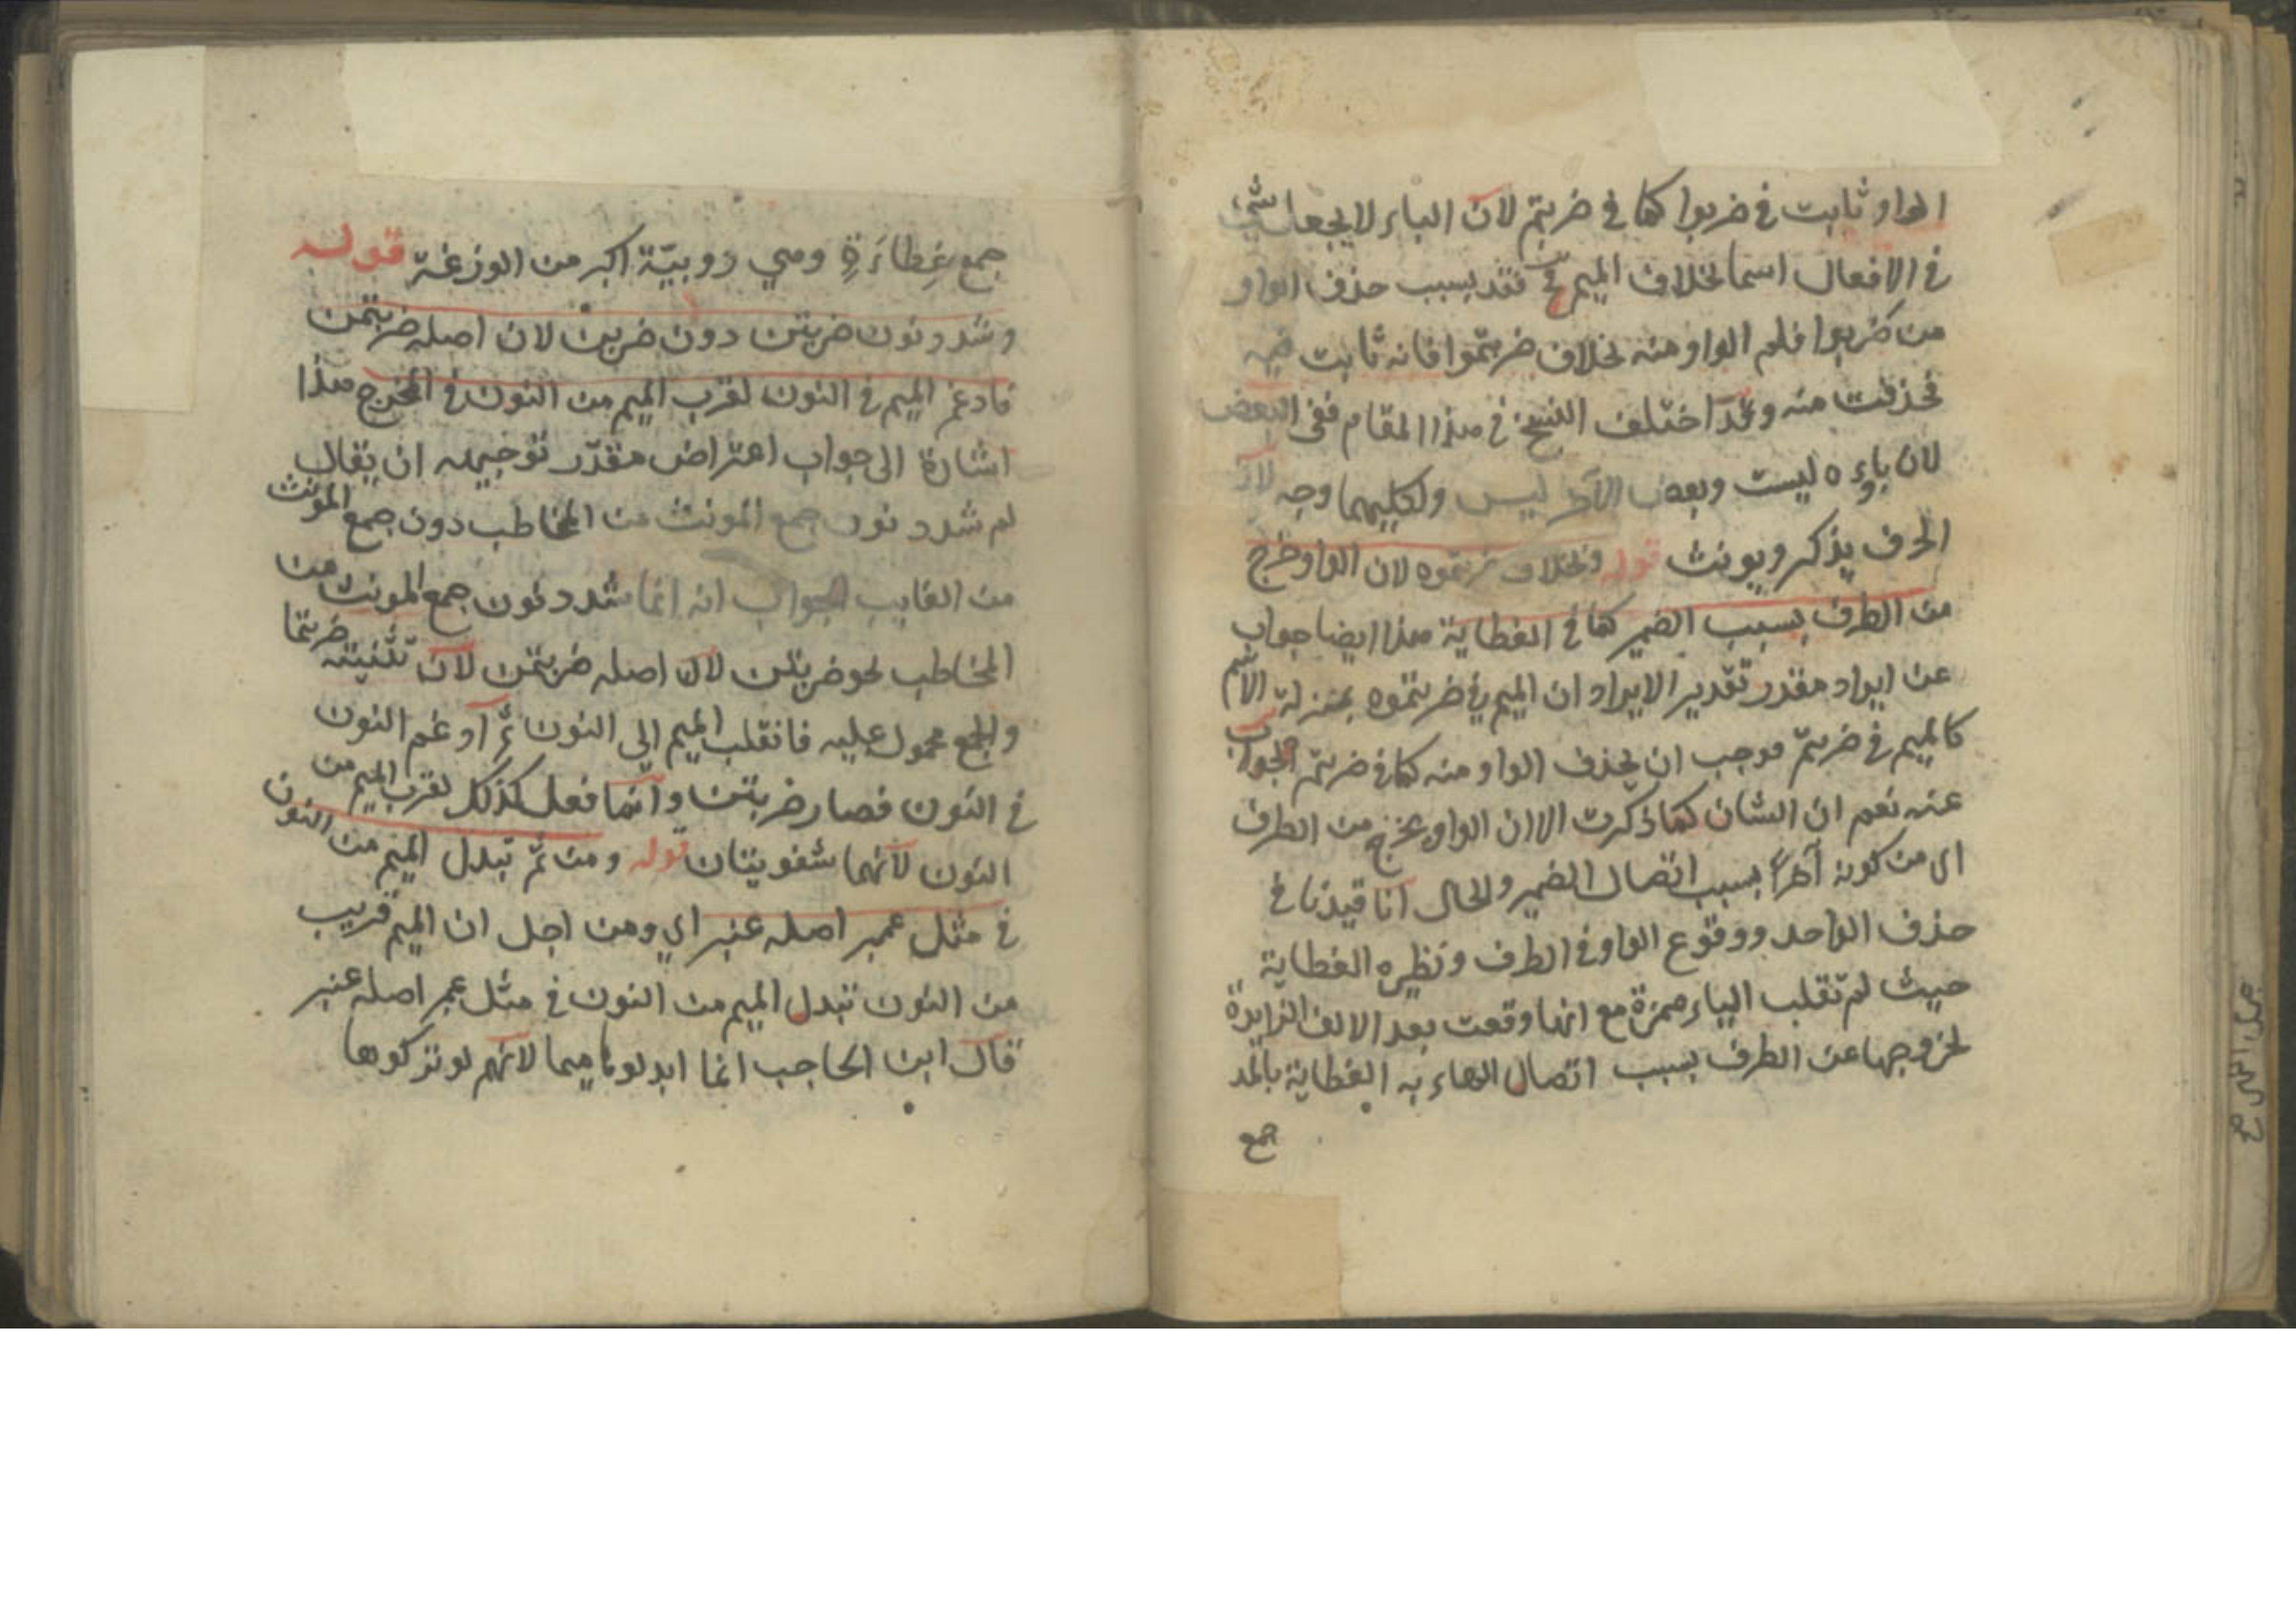 الواو ثابت في ضربوا كما في ضربتم لان الباء لا يجعل شيئ
في الافعال اسما بخلاف الميم فقد بسبب حذف الواو
من ضربوا فلم الواو منه بخلاف ضربتموا فانه ثابت فيه
فحذفت منه وقد اختلف النسخ في هذا المقام ففي البعض
لان باءه ليست وبعض الآخر ليس ولكليهما وجه لان
الحرف يذكر ويونث قوله وبخلاف ضربتموه لان الواو خرج
من الطرف بسبب الضمير كما في الغطاية هذا ايضا جواب
عن ايراد مقدر تقدير الايراد ان الميم في ضربتموه بمنزلة الاسم
كالميم في ضربتم فوجب ان يحذف الواو منه كما في ضربتم الجواب
عنه نعم ان الشان كما ذكرت الا ان الواو يخرج من الطرف
اى من كونه آخرا بسبب اتصال الضمير والحال انا قيدنا في
حذف الواحد ووقوع الواو في الطرف ونظيره الغطاية
حيث لم تقلب الياء همزة مع انها وقعت بعد الالف الزايدة
لخروجها عن الطرف بسبب اتصال الهاء به الغطاية بالمد
جمع
جمع غِطاءَةِ وهي دوبيّة اكبر من الوزغة قوله
وشدد نون ضربتن دون ضربن لان اصله ضربتمن
فادغم الميم في النون لقرب الميم من النون في المخرج هذا
اشارة الى جواب اعتراض مقدّر توجيهه ان يقال
لم شدد نون جمع المونث من المخاطب دون جمع المونث
من الغايب الجواب انه انما شدد نون جمع المونث من
المخاطب نحو ضربتن لان اصله ضربتمن لان تثنيته ضربتما
والجمع محمول عليه فانقلب الميم الي النون ثم ادغم النون
في النون فصار ضربتن وانما فعل كذلك لقرب الميم من
النون لانهما شفويتان قوله ومن ثم تبدل الميم من النون
في مثل عمبر اصله عنبر اي ومن اجل ان الميم قريب
من النون تبدل الميم من النون في مثل عمبر اصله عنبر
قال ابن الحاجب انما ابدلوها ميما لانهم لو تركوها